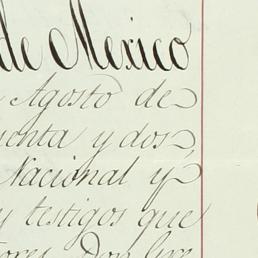 de Mexico
Agosto de
enta y dos,
Nacional y
y testigos que
Don